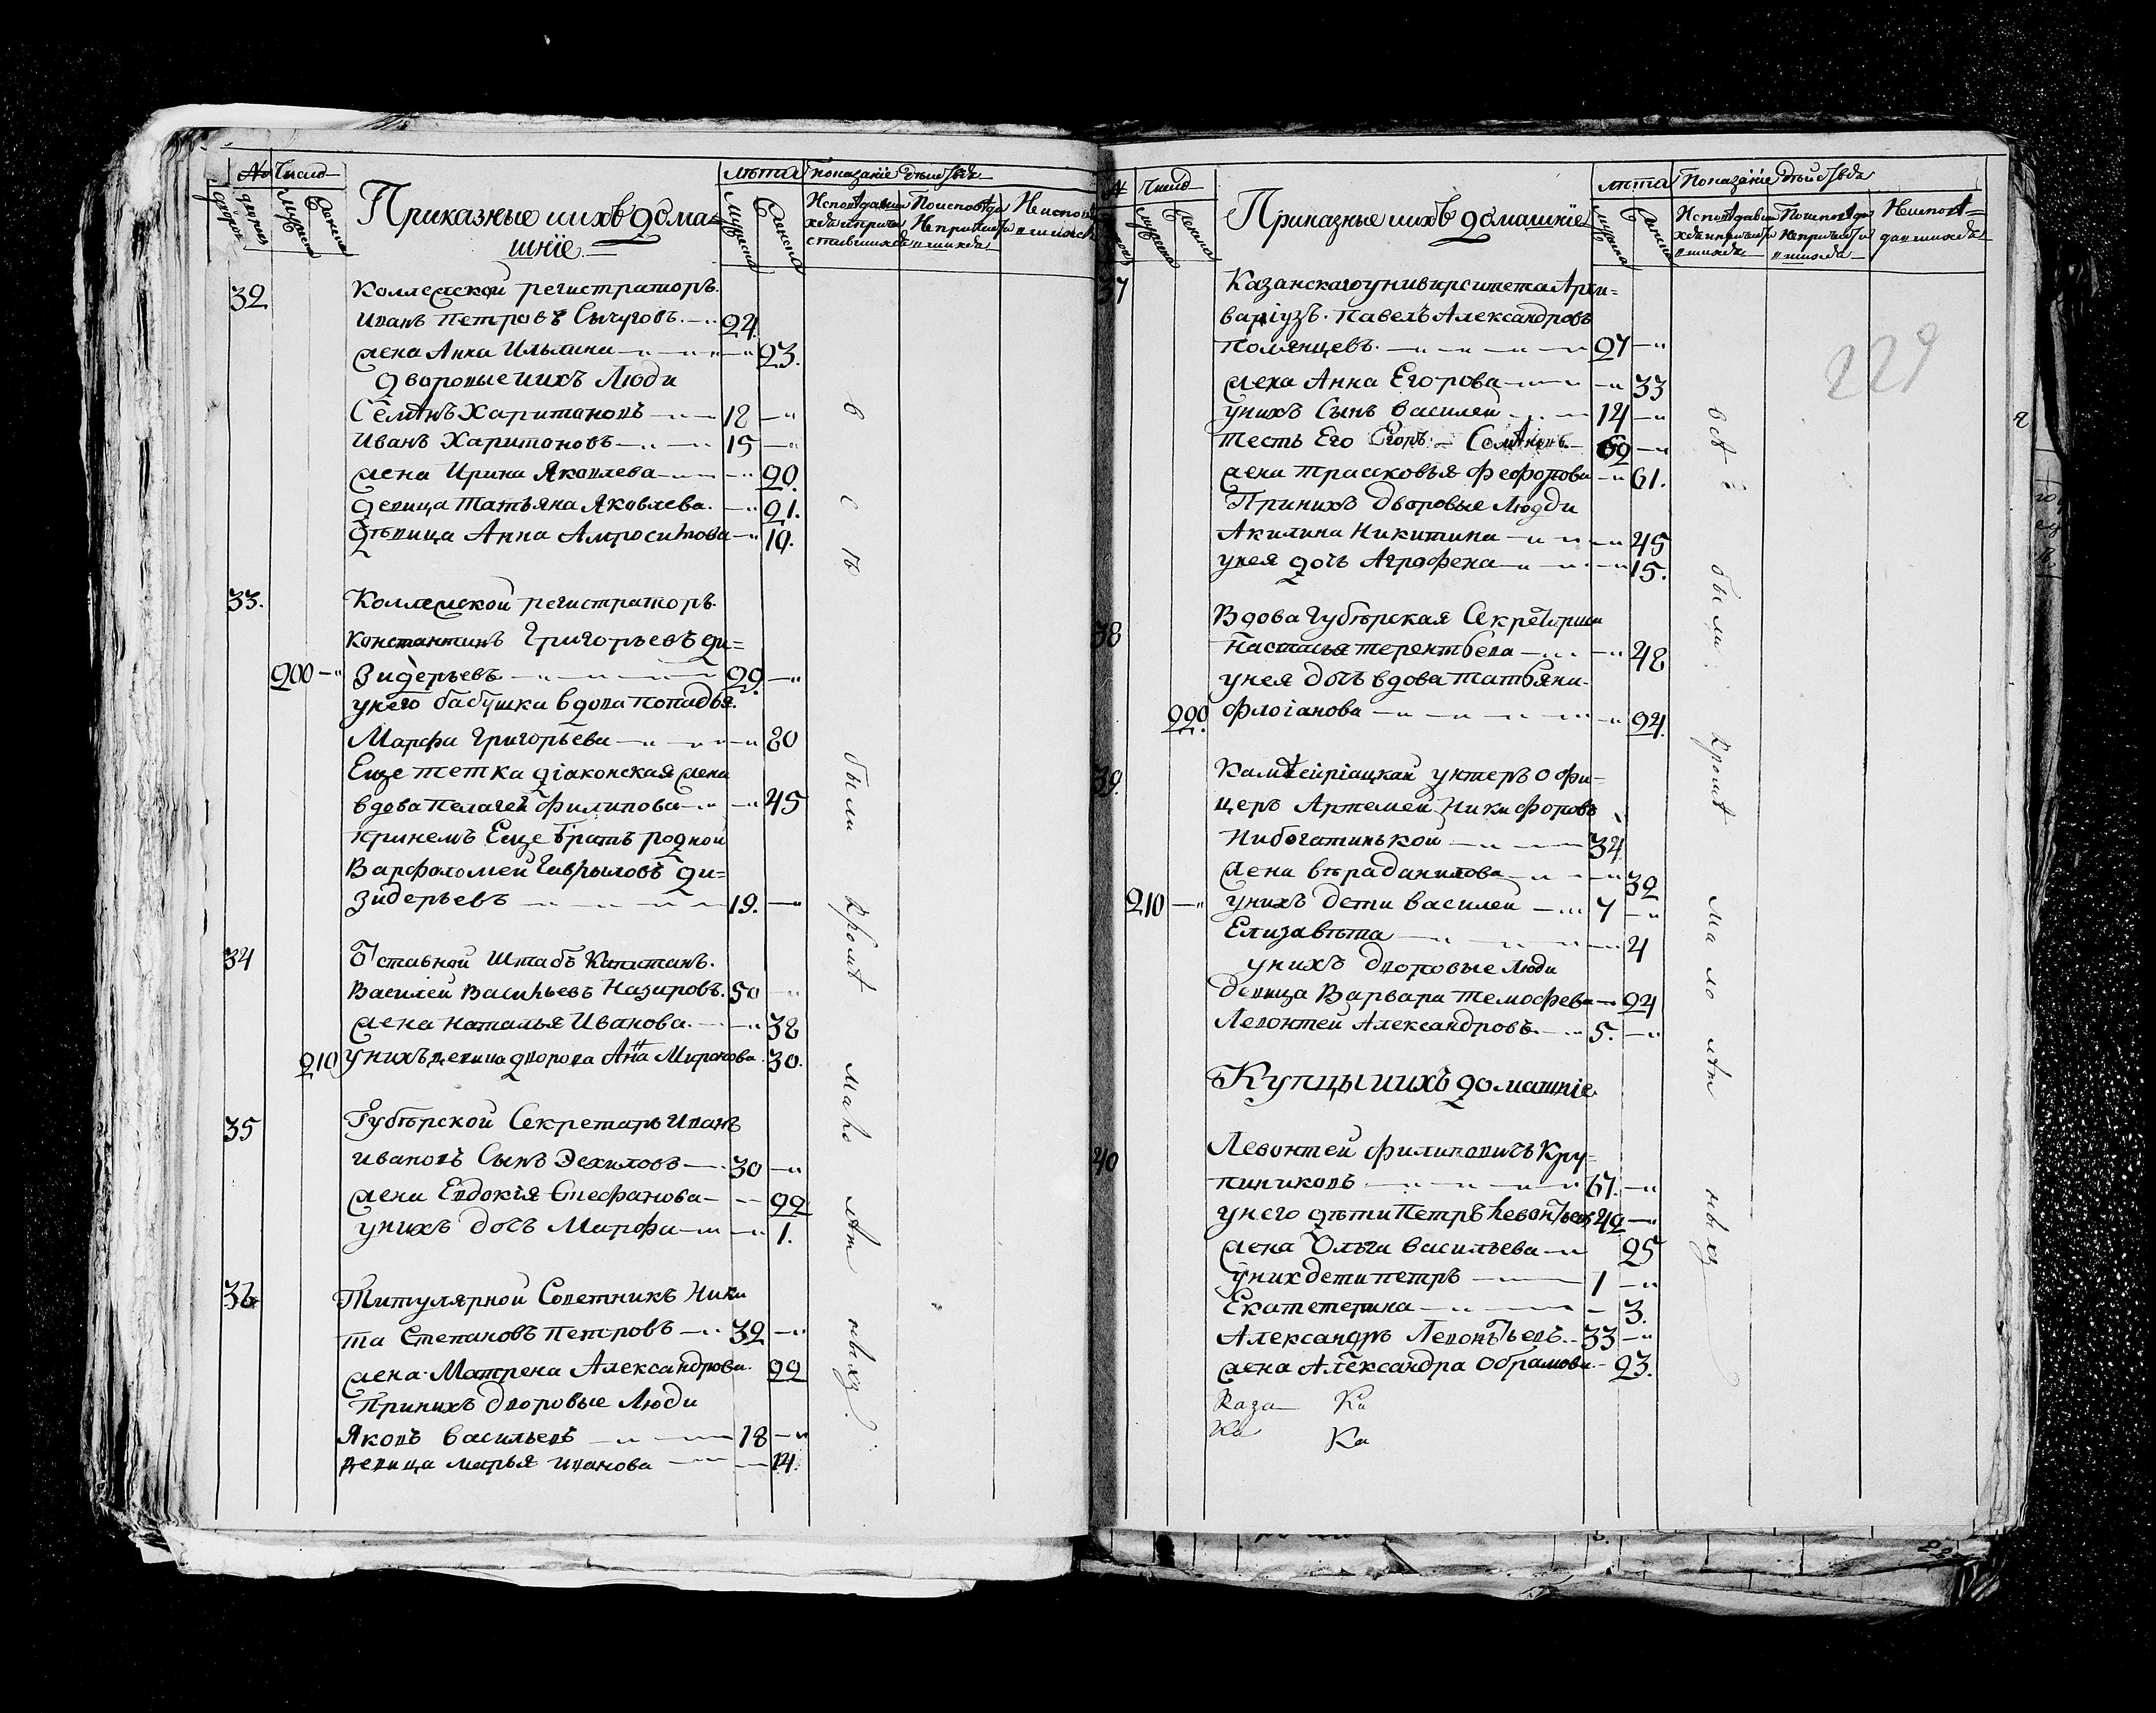 № Число
Приказные иихъ дома=
шнїе
лѣта Показанїе действа
32 Коллежской регистраторъ
Иванъ Петровъ Сычуговъ 24
жена Анна Ильина 23.
дворовые ихъ Люди
Семѣнъ Харитоновъ 18
Иванъ Харитоновъ 15
жена Ирина Яковлева 20.
девица Татьяна Яковлева. 21.
дѣвица Анна Амросимова 19.
33. Коллежской регистраторъ
Константинъ Григорьевъ ди=
200 зидерьевъ 22.
унего бабушка вдова попадья.
Марфа Григорьева 80
Еще тетка дїаконская жена
вдова Пелагея Филипова 45
принемъ Еще братъ родной
Варфоломей Гаврыловъ ди=
зидерьевъ 19.
34 Отставной Штабъ Капитанъ.
Василей Васильевъ Назировъ. 50
жена Наталья Иванова. 38
210 унихъ девица дворова Анна Миронова. 30.
35 Губѣрской Секретарь Иванъ
Ивановъ Сынъ 30
жена Евдокїя Стефанова 22
унихъ дочь Марфа 1.
36 Титулярной Советникъ Ники
та Степановъ Петровъ 32
жена Матрена Александрова. 22
Принихъ дворовые Люди
Яковъ Васильевъ 18
девица Марья Иванова 14.
всѣ были Кромѣ малолѣтныхъ
№ Число
Приказные ихъ домашнїе
лѣта Показанїе действа
229
37 Казанскаго университета Архи=
варїузъ Павелъ Александровъ
Полянцевъ. 27
жена Анна Егорова 33
унихъ Сынъ Василей 14
тесть Его Егоръ Семѣновъ 62
жена Прасковья Феофонова 61.
Принихъ дворовые Людди
Акилина Никитина 45
унея дочь Аграфена 15.
38 Вдова Губѣрская Секретарша
Настасья Терентьева 48
унея дочь вдова Татьяна
220. Флогїанова 24.
39. унтеръ Офи=
церъ Артемей Никифоровъ
Небогатинькой 34
жена вѣра данилова 32
210 унихъ дети Василей 7
Елизавѣта 4
унихъ дворовые Люди
девица Варвара Темофева 24
Левонтей Александровъ 5.
Купцы иихъ домашнїе
40 Левонтей Филиповичъ Кру=
пиниковъ 67.
унего дѣти Петръ Левонтьевъ 40
жена Ольга Васильева 25
унихдети петръ 1
Екатетерина 3.
Александръ Левонтьевъ 33
жена Александра Обрамова 23.
Каза Ка
Ка Ка
всѣ были Кромѣ малолѣтныхъ